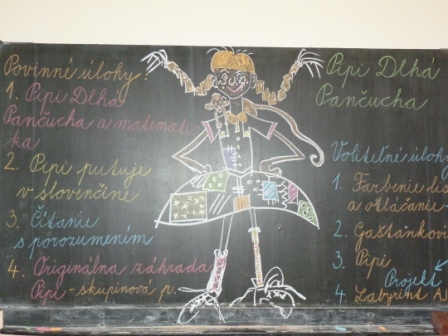 Povinné úlohy:
1. Pipi Dlhá
Pančucha a matemati-
ka
2. Pipi putuje
v slovenčine
3. Čítanie
s porozumením
4. Originálna záhrada
Pipi - skupinová p.
Pipi Dlhá
Pančucha
Voliteľné úlohy
1. Farbenie
a otláčanie
2.
3. Pipi
Projekt
4. Labyrint